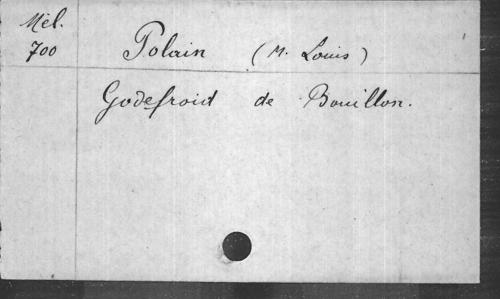 Mél.
700
Polain (M. Louis)
Godefroid de Bouillon.